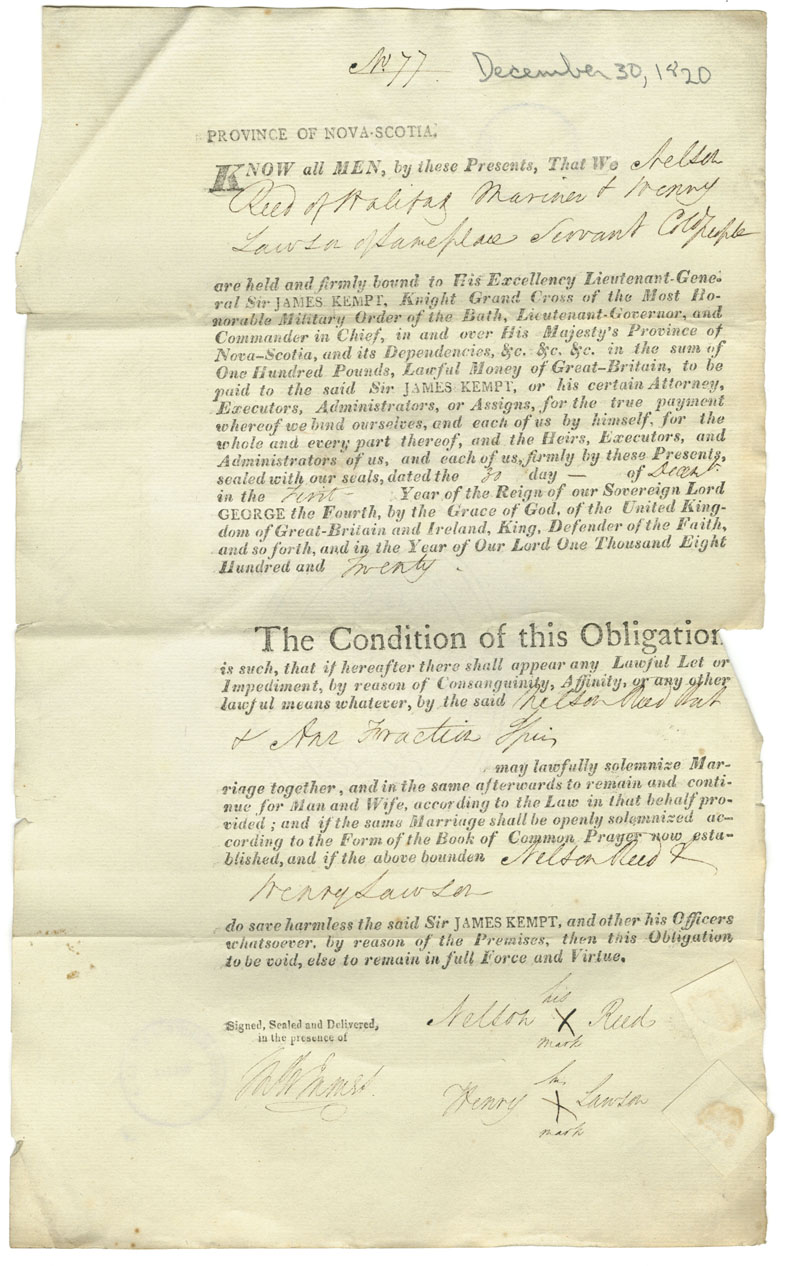 No. 77
December 30, 1820
PROVINCE OF NOVA-SCOTIA.
KNOW all MEN, by these Presents, That We Nelson
Reed of Halifax Mariner & Henry
Lawson of same place Servant Cold people
are held and firmly bound to His Excellency Lieutenant-Gene-
ral Sir JAMES KEMPT, Knight Grand Cross of the Most Ho-
norable Military Order of the Bath, Lieutenant-Governor, and
Commander in Chief, in and over His Majesty's Province of
Nova-Scotia, and its Dependencies, &c. &c. &c. in the sum of
One Hundred Pounds, Lawful Money of Great-Britain, to be
paid to the said Sir JAMES KEMPT, or his certain Attorney,
Executors, Administrators, or Assigns, for the true payment
whereof we bind ourselves, and each of us by himself, for the
whole and every part thereof, and the Heirs, Executors, and
Administrators of us, and each of us, firmly by these Presents,
sealed with our seals, dated the 30 day — of Decem
in the First Year of the Reign of our Sovereign Lord
GEORGE the Fourth, by the Grace of God, of the United King-
dom of Great-Britain and Ireland, King, Defender of the Faith,
and so forth, and in the Year of Our Lord One Thousand Eight
Hundred and Twenty.
The Condition of this Obligation
is such, that if hereafter there shall appear any Lawful Let or
Impediment, by reason of Consanguinity, Affinity, or any other
lawful means whatever, by the said Nelson Reed Bat
& Ann Fraction Spin
may lawfully solemnize Mar-
riage together, and in the same afterwards to remain and conti-
nue for Man and Wife, according to the Law in that behalf pro-
vided; and if the same Marriage shall be openly solemnized ac-
cording to the Form of the Book of Common Prayer now esta-
blished, and if the above bounden Nelson Reed &
Henry Lawson
do save harmless the said Sir JAMES KEMPT, and other his Officers
whatsoever, by reason of the Premises, then this Obligation
to be void, else to remain in full Force and Virtue.
Signed, Sealed and Delivered,
in the presence of
his
Nelson X Reed
mark
his
Henry X Lawson
mark